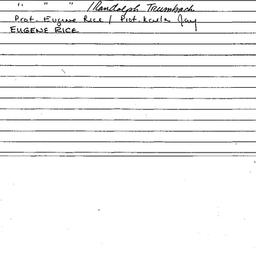 " " " / Randolph Trumbach
Prof. Eugene Rice / Prof. Karla Jay
EUGENE RICE